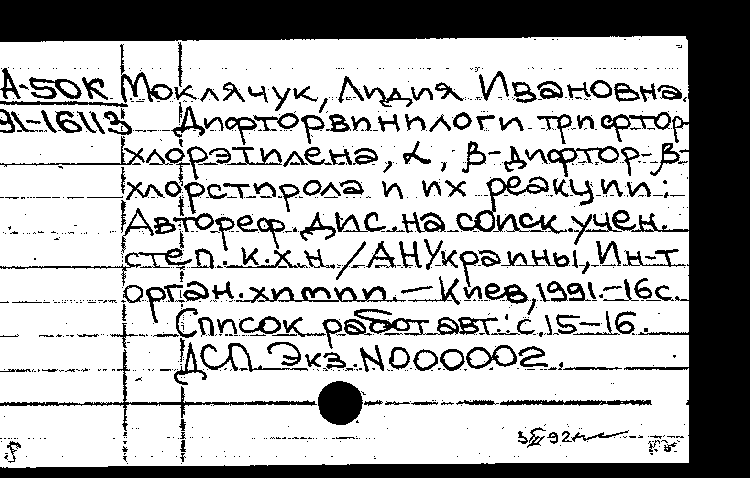 А-50К Моклячук, Лидия Ивановна.
91-16113 Дифторвинилоги трифтор-
хлорэтилена, α, β-дифтор-β-
хлорстирола и их реакции:
Автореф. дис. на соиск. учен.
степ. к.х.н. / АН Украины, Ин-т
орган. химии. — Киев, 1991. — 16с.
Список работ авт.: с. 15-16.
ДСП. Экз. N000002.
8